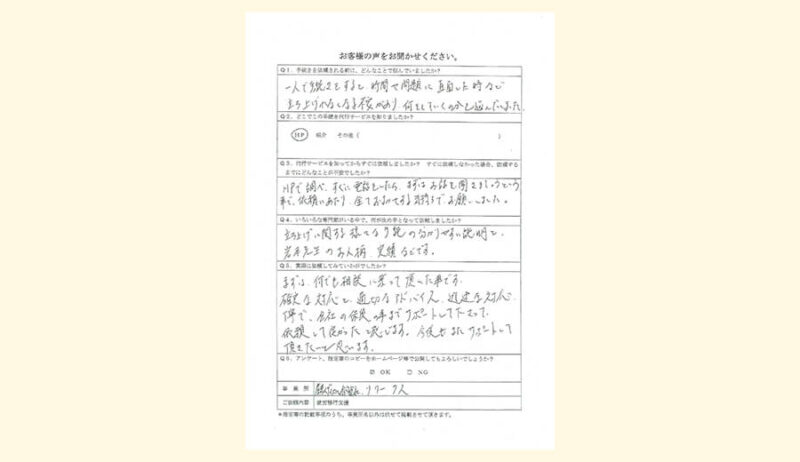 お客様の声をお聞かせください。
Q1.手続きを依頼される前に、どんなことで悩んでいましたか?
一人で手続きをすると、時間や問題に直面した時など
立ち上げれなくなる不安があり、何をしていくのかも悩んでいました。
Q2.どこでこの手続き代行サービスを知りましたか?
HP 紹介 その他( )
Q3.代行サービスを知ってからすぐに依頼しましたか? すぐに依頼しなかった場合、依頼する
までにどんなことが不安でしたか?
HPで調べ、すぐに電話をしたら、まずはお話を聞きましょうという
事で、依頼にあたり、全ておまかせする気持ちでお願いしました。
Q4.いろいろな専門家がいる中で、何が決め手となって依頼しましたか?
立ち上げに関する様々な事の分かりやすい説明と、
岩本先生のお人柄、実績などです。
Q5.実際に依頼してみていかがでしたか?
まずは、何でも相談に乗って頂いた事です。
確実な対応と、適切なアドバイス、迅速な対応
等で、会社の保険の事までサポートして下さって、
依頼して良かったと感じます。今後もまたサポートして
頂きたいと思います。
Q6.アンケート、指定書のコピーをホームページ等で公開してもよろしいでしょうか?
☑ OK ☐ NG
事業所 リワーク人
ご依頼内容 就労移行支援
*指定書の記載事項のうち、事業所名以外は伏せて掲載させて頂きます。